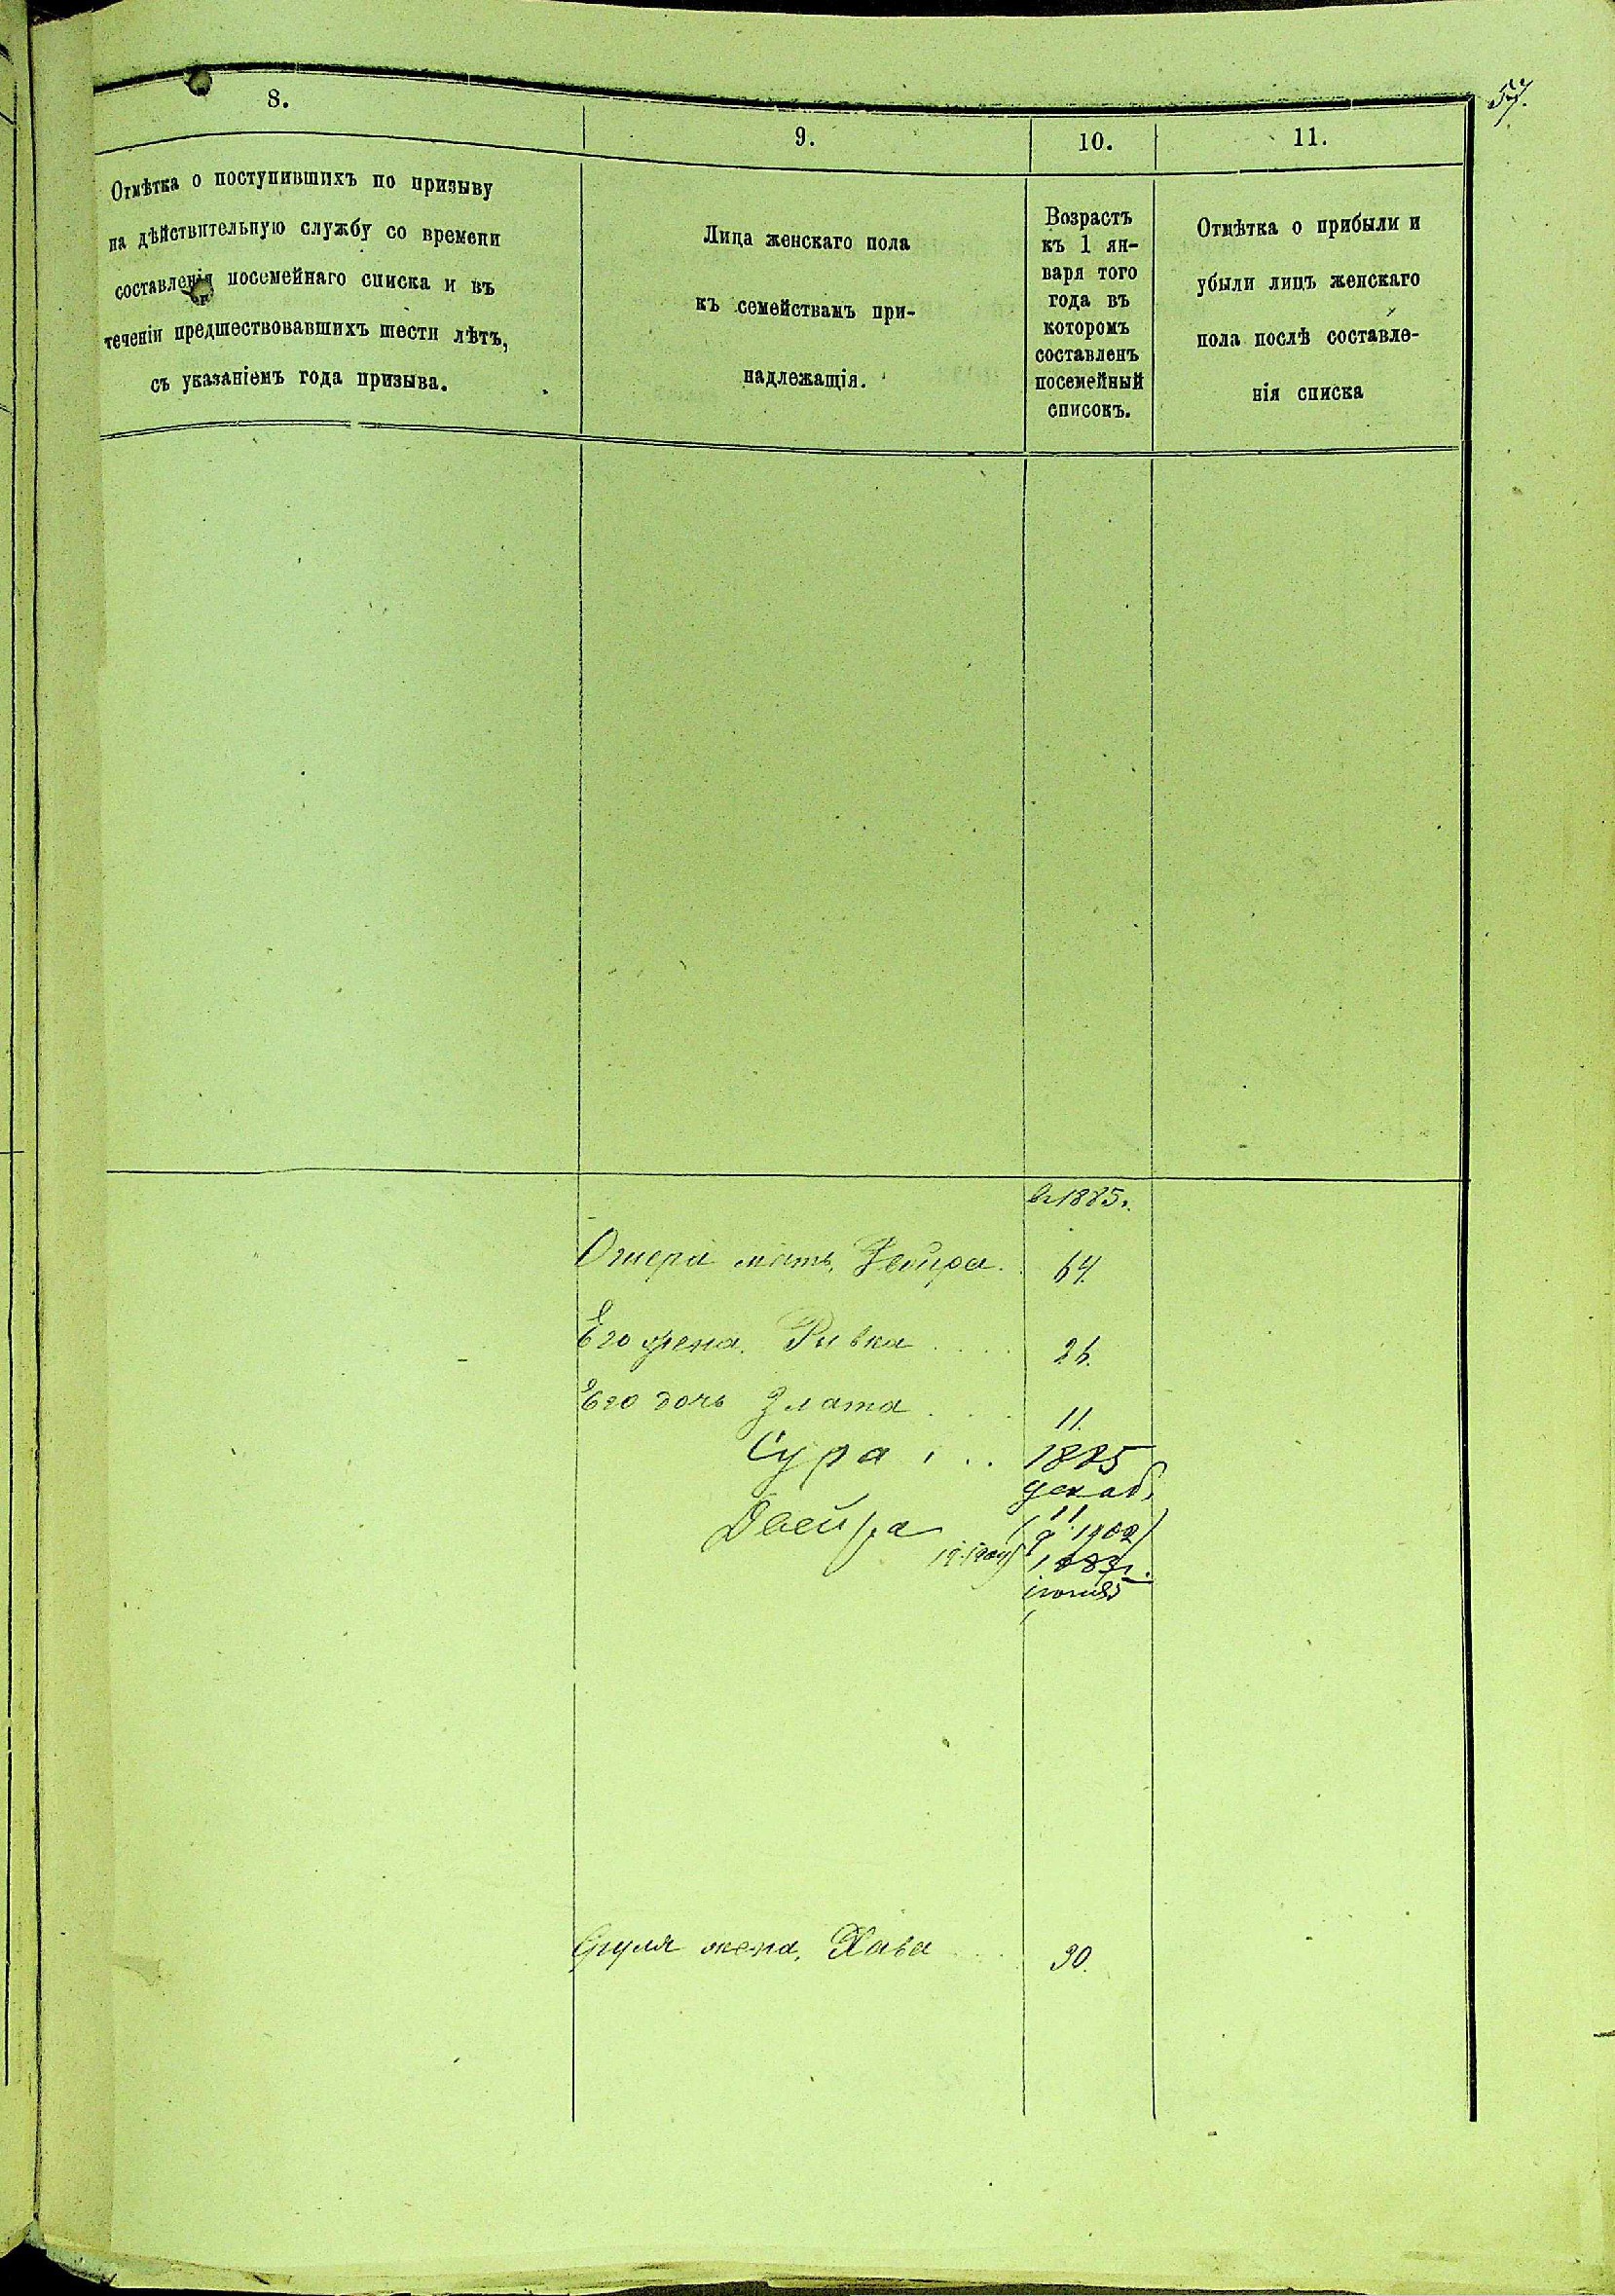 57.
8.
9.
10.
11.
Отмѣтка о поступившихъ по призыву
на дѣйствительную службу со времени
составленія посемейнаго списка и въ
теченіи предшествовавшихъ шести лѣтъ,
съ указаніемъ года призыва.
Лица женскаго пола
къ семействамъ при-
надлежащія.
Возрастъ
къ 1 ян-
варя того
года въ
которомъ
составленъ
посемейный
списокъ.
Отмѣтка о прибыли и
убыли лицъ женскаго
пола послѣ составле-
нія списка
в 1885 г.
мать, 64.
Его жена. Ривка .... 26.
Его дочь Злата .... 11.
Сура ... 1885
декаб.
11
Двейра
1902)
Сруля жена, Хава .... 30.